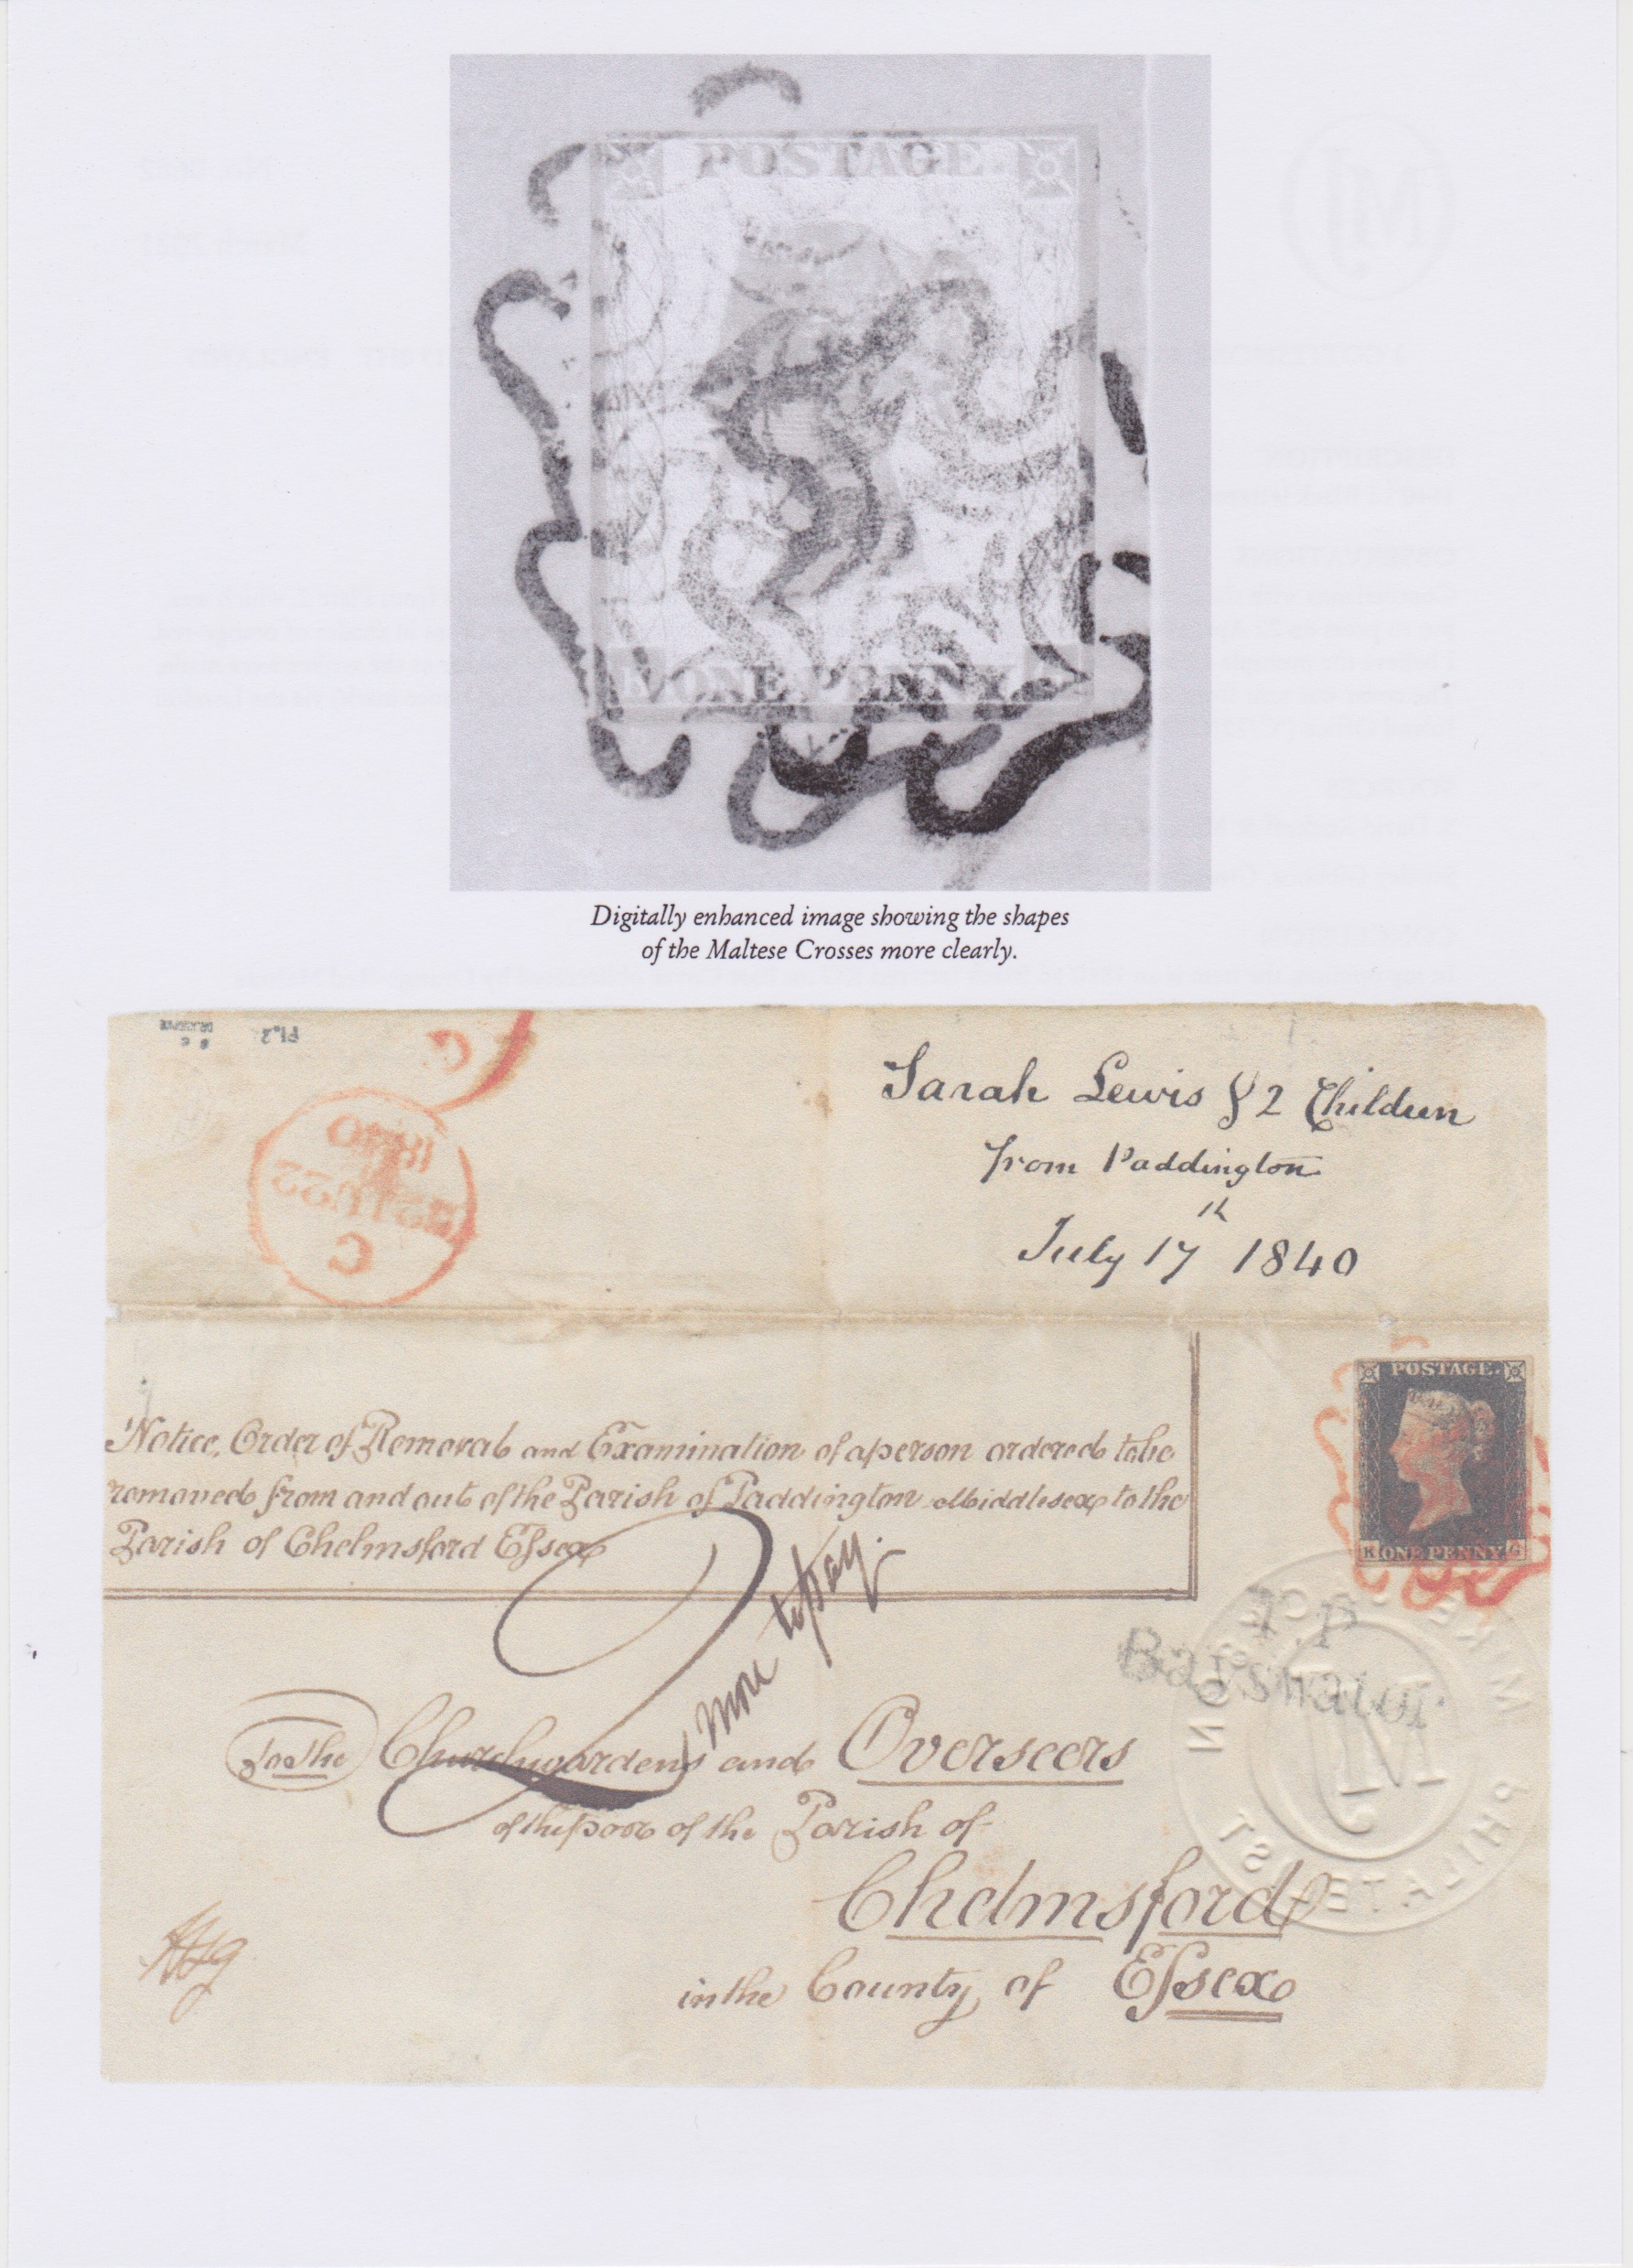 POSTAGE.
K ONE PENNY G
Digitally enhanced image showing the shapes
of the Maltese Crosses more clearly.
Pl.2
C
22 JY 22
1840
Sarah Lewis & 2 Children
from Paddington
July 17th 1840
POSTAGE.
K ONE PENNY G
Notice, Order of Removal and Examination of a person ordered to be
removed from and out of the Parish of Paddington Middlesex to the
Parish of Chelmsford Essex
2
more to pay.
T.P
Bayswater
To the Churchwardens and Overseers
of the poor of the Parish of
Chelmsford
in the County of Essex
MIKE JACKSON PHILATELIST
MJ